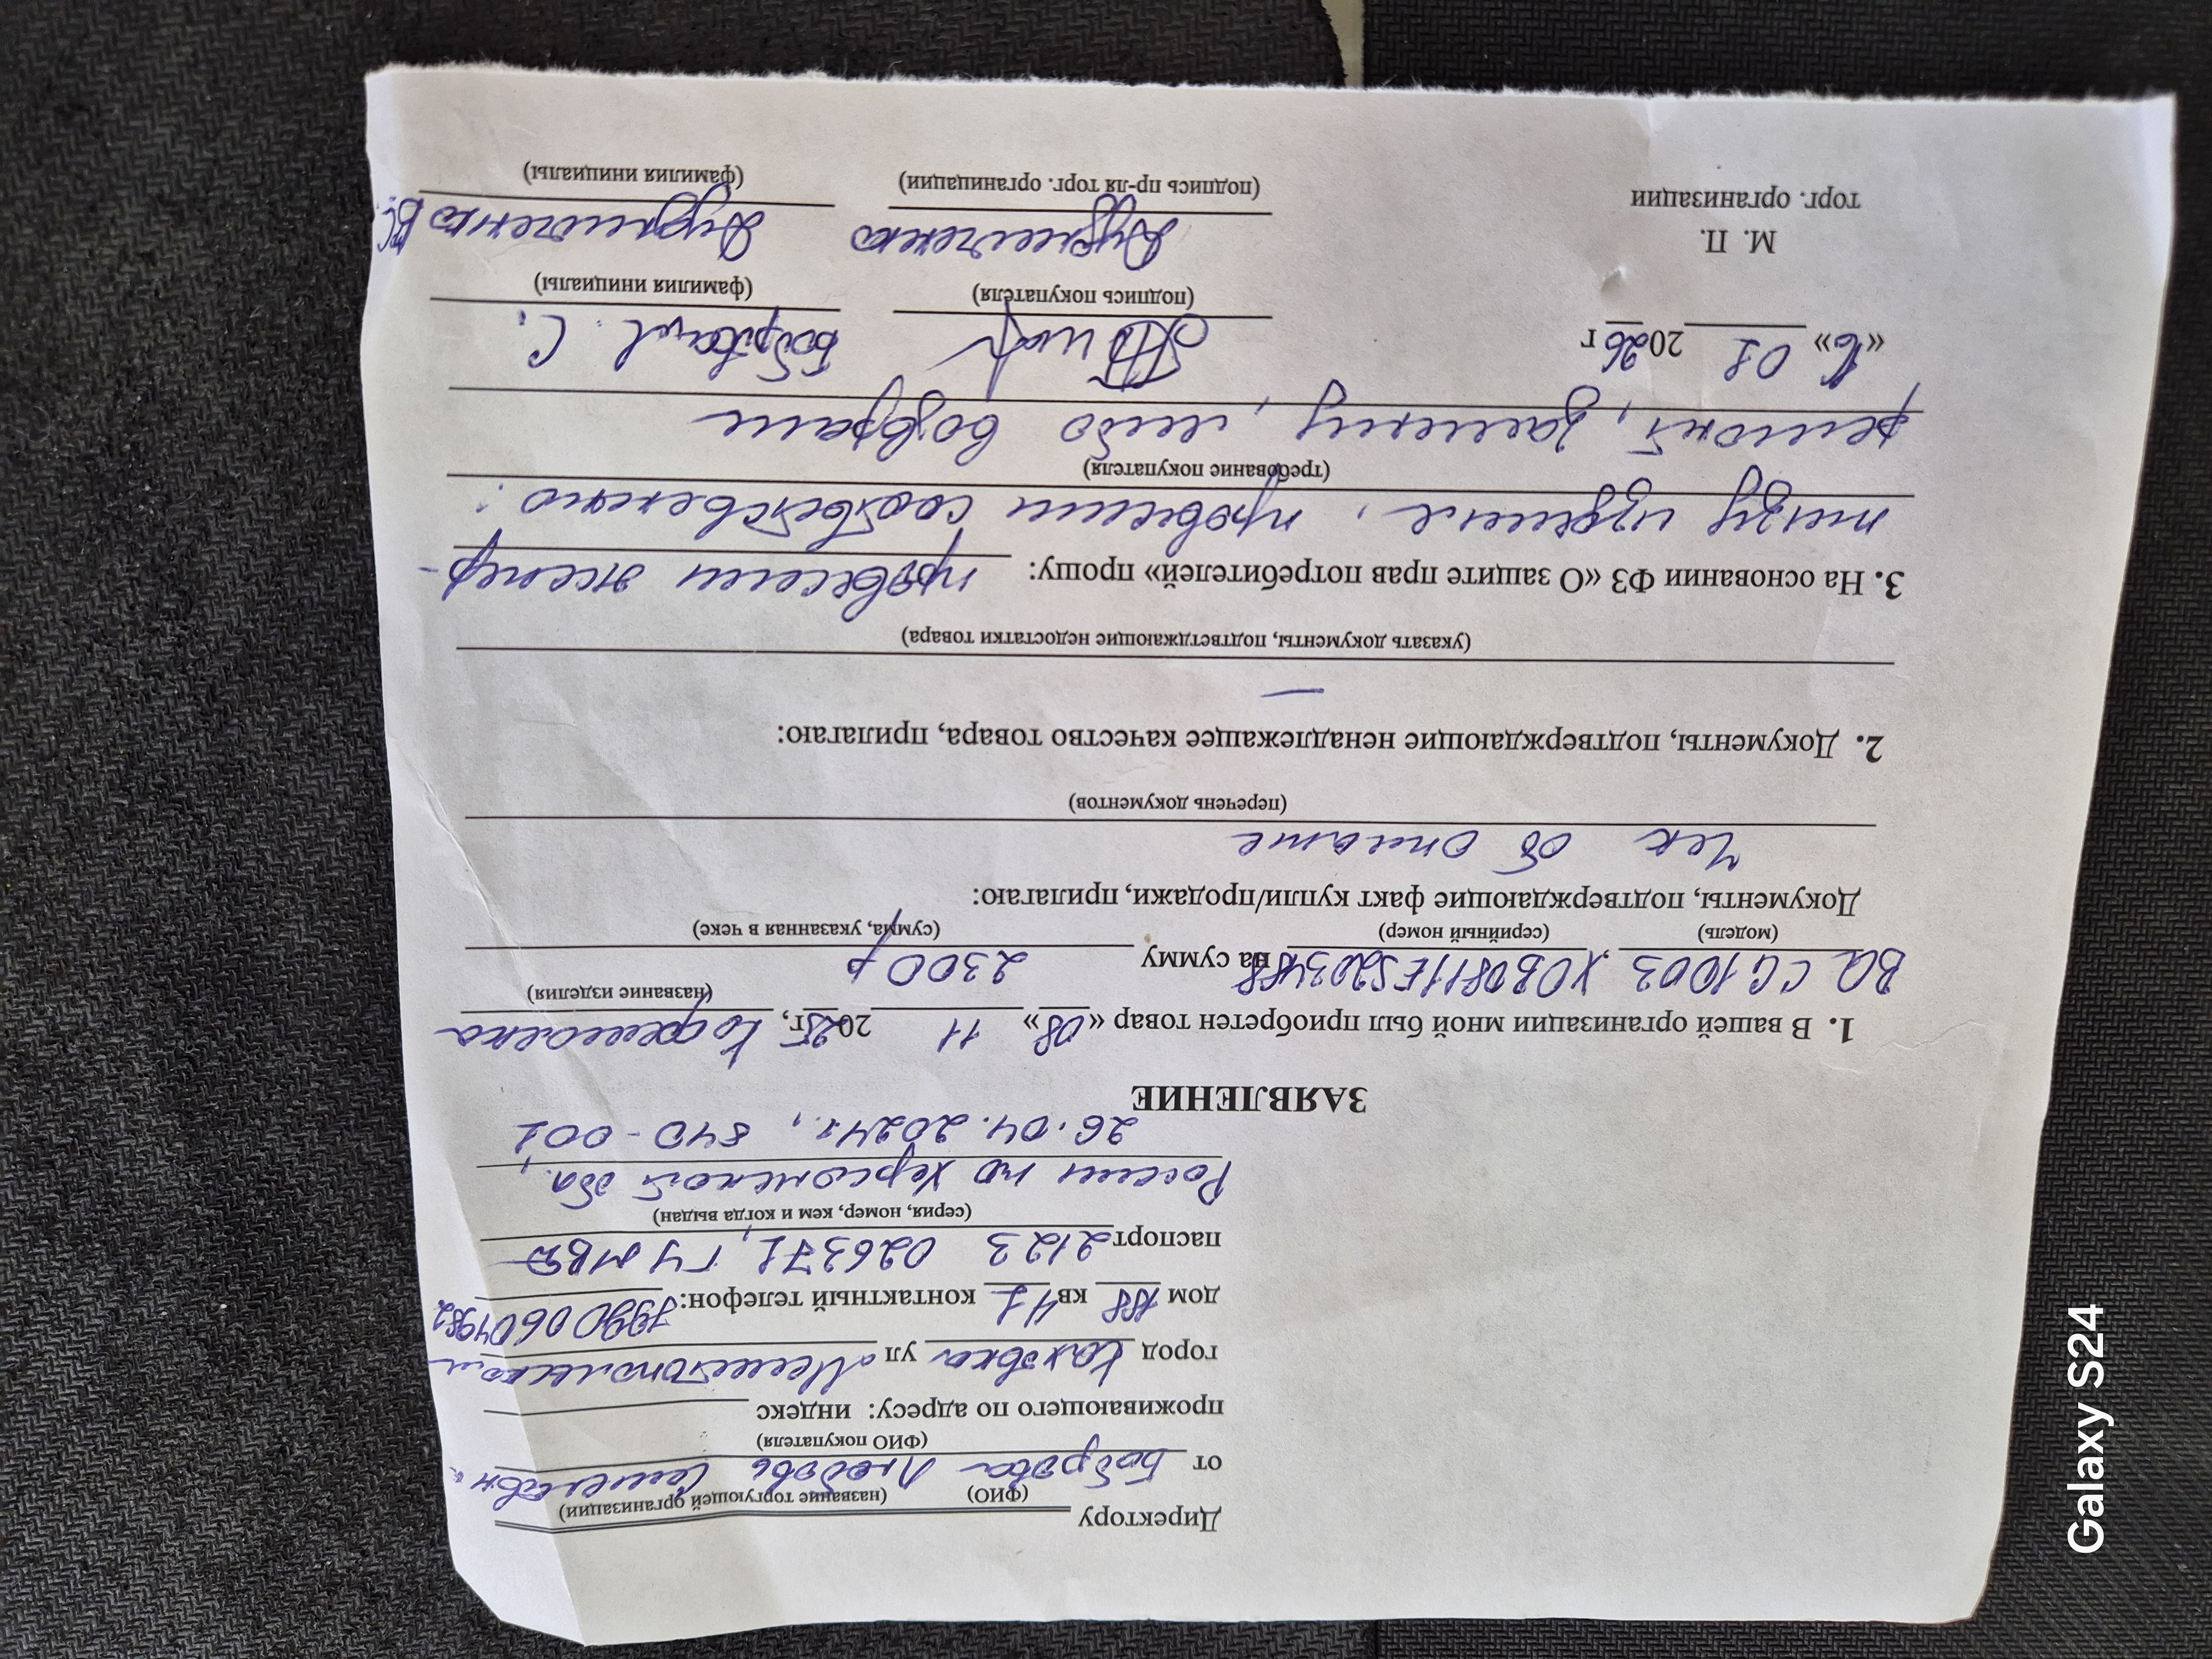 Директору
(ФИО) (название торгующей организации)
от Боброва Любовь
(ФИО покупателя)
проживающего по адресу: индекс
город Каховка ул Мелитопольская
дом 188 кв 41 контактный телефон: 79900604982
паспорт 2123 026371, ГУ МВД
(серия, номер, кем и когда выдан)
России по Херсонской обл.,
26.04.2024г., 840-001
ЗАЯВЛЕНИЕ
1. В вашей организации мной был приобретен товар «08» 11 2025г, Кофемолка
(название изделия)
BQ CG1003, на сумму 2300 р
(модель) (серийный номер) (сумма, указанная в чеке)
Документы, подтверждающие факт купли/продажи, прилагаю:
Чек об оплате
(перечень документов)
2. Документы, подтверждающие ненадлежащее качество товара, прилагаю:
—
(указать документы, подтветджающие недостатки товара)
3. На основании ФЗ «О защите прав потребителей» прошу: провести экспер-
тизу изделия, провести соответственно:
(требование покупателя)
ремонт, замену, либо возврат
«16» 01 2026 г Боброва Л. С.
(подпись покупателя) (фамилия инициалы)
М. П.
торг. организации
(подпись пр-ля торг. органицации) (фамилия инициалы)
Galaxy S24